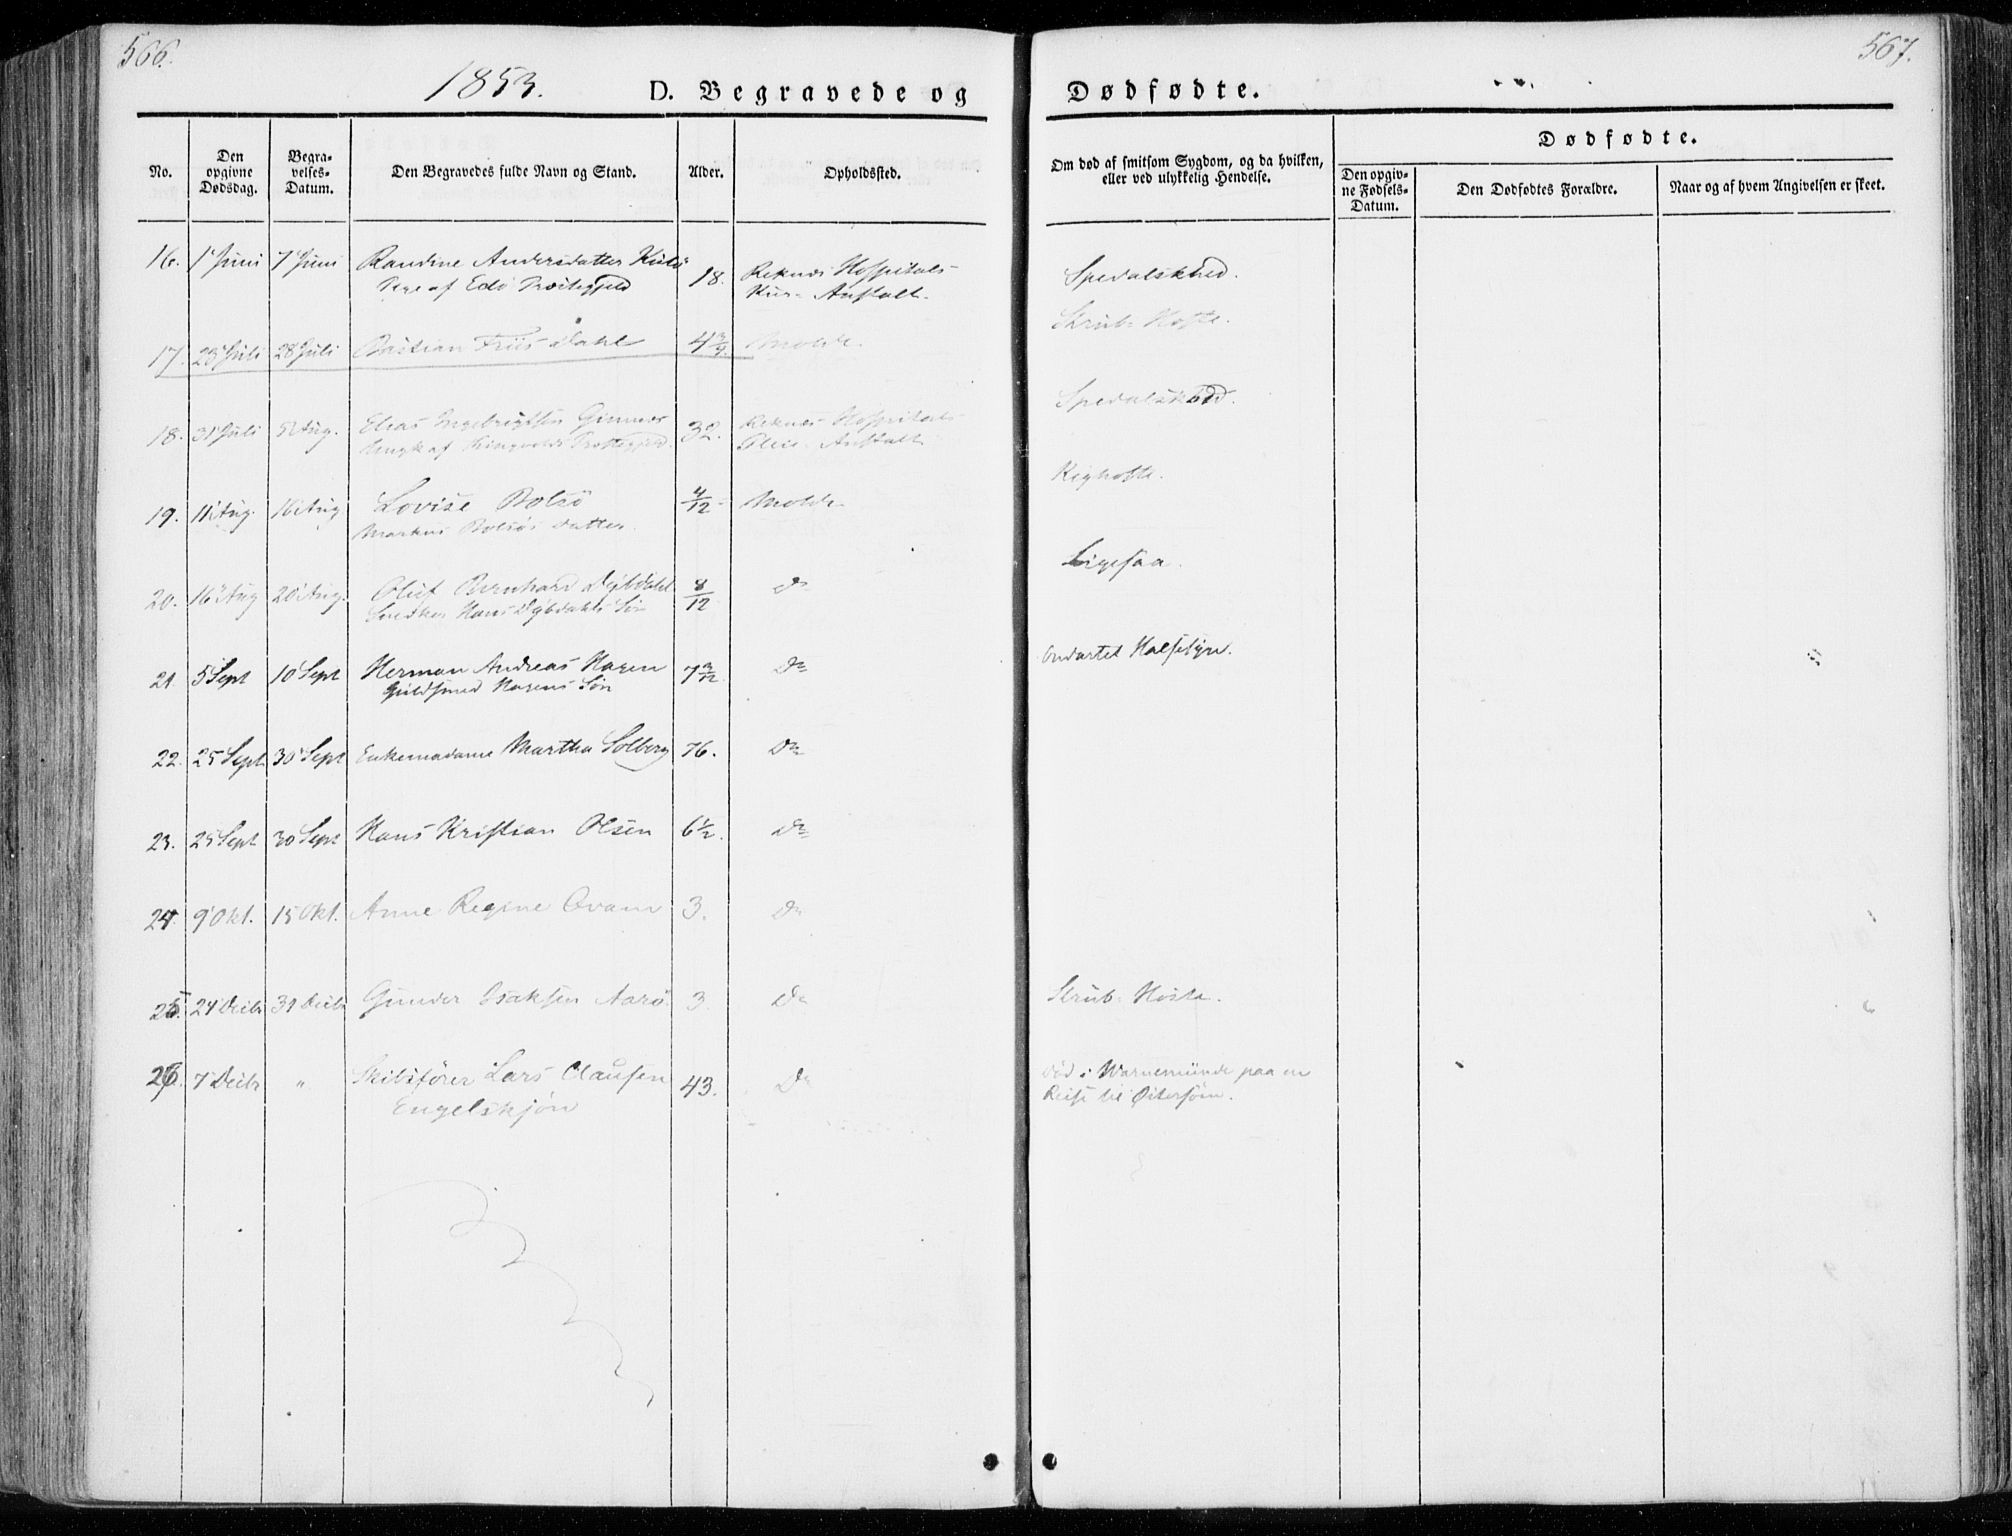 566.
567.
1853.
D. Begravede og
Dødfødte.
No.
Den opgivne Dødsdag.
Begravelses-Datum.
Den Begravedes fulde Navn og Stand.
Alder.
Opholdssted.
Om død af smitsom Sygdom, og da hvilken,
eller ved ulykkelig Hendelse.
Dødfødte.
Den opgivne Fødsels-Datum.
Den Dødfødtes Forældre.
Naar og af hvem Angivelsen er skeet.
16. 1 Juni 7 Juni Randine Andersdatter 18. Reknæs Hospitals- Spedalskhed.
Pige af Edø Præstegjeld Kur-Anstalt.
17. 23 Juli 28 Juli Bastian Friis Dahl 4 3/4. Molde. Skrub-Hoste.
18. 31 Juli 5 Aug. Elias Ingebrigtsen 32. Reknæs Hospitals Spedalskhed.
af Præstegjeld. Pleie-Anstalt
19. 11 Aug. 16 Aug Lovise Bolsø 4/12 Molde Kighoste.
Markus Bolsøs Datter.
20. 16 Aug 20 Aug. Oluf Bernhard Dybdahl 8/12 Do Ligesaa.
Snedker Hans Dybdahls Søn
21. 5 Sept 10 Sept Herman Andreas Hagen 7 3/12. Do Ondartet Halssyge.
Guldsmed Hagens Søn
22. 25 Sept 30 Sept Enkemadame Martha Solberg 76. Do
23. 25 Sept 30 Sept Hans Kristian Olsen 6 1/2. Do
24. 9 Okt. 15 Okt. Anne Regine Qvam 3. Do
25. 24 Decbr 31 Decbr Gunder Isaksen Aarø. 3. Do Skrub-Hoste.
26. 7 Decbr " Skibsfører Lars Clausen 43. Do død i Warnemünde paa en
Engelskjøn Reise til Østersøen.